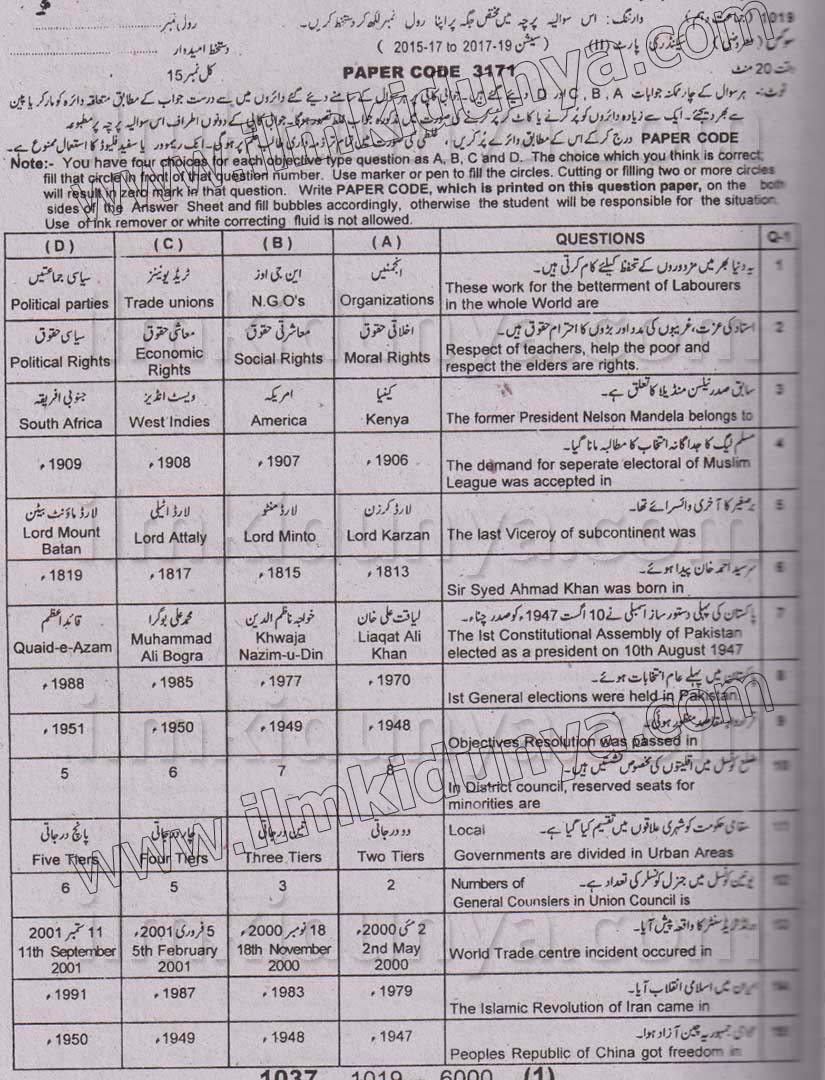 1019
وارننگ: اس سوالیہ پرچہ میں مختص جگہ پر اپنا رول نمبر لکھ کر دستخط کریں۔
رول نمبر
(سیشن 2015-17 to 2017-19)
پارٹ (II)
دستخط امیدوار
وقت 20 منٹ
PAPER CODE 3171
کل نمبر 15
نوٹ:- ہر سوال کے چار ممکنہ جوابات C, B, A اور D دیئے گئے ہیں۔ جوابی کاپی پر ہر سوال کے سامنے دیئے گئے دائروں میں سے درست جواب کے مطابق متعلقہ دائرہ کو مارکر یا پین
سے بھر دیجئے۔ ایک سے زیادہ دائروں کو پُر کرنے یا کاٹ کر پُر کرنے کی صورت میں مذکورہ جواب غلط تصور ہوگا۔ جوابی کاپی کے دونوں اطراف اس سوالیہ پرچہ پر مطبوعہ
PAPER CODE درج کرکے اس کے مطابق دائرے پُر کریں، غلطی کی صورت میں تمام تر ذمہ داری طالب علم پر ہوگی۔ انک ریموور یا سفید فلیوڈ کا استعمال ممنوع ہے۔
Note:- You have four choices for each objective type question as A, B, C and D. The choice which you think is correct;
fill that circle in front of that question number. Use marker or pen to fill the circles. Cutting or filling two or more circles
will result in zero mark in that question. Write PAPER CODE, which is printed on this question paper, on the both
sides of the Answer Sheet and fill bubbles accordingly, otherwise the student will be responsible for the situation.
Use of ink remover or white correcting fluid is not allowed.
(D) (C) (B) (A) QUESTIONS Q-1
سیاسی جماعتیں ٹریڈ یونینز این جی اوز انجمنیں یہ دنیا بھر میں مزدوروں کے تحفظ کیلئے کام کرتی ہیں۔ 1
Political parties Trade unions N.G.O's Organizations These work for the betterment of Labourers
in the whole World are
سیاسی حقوق معاشی حقوق معاشرتی حقوق اخلاقی حقوق استاد کی عزت، غریبوں کی مدد اور بڑوں کا احترام حقوق ہیں۔ 2
Political Rights Economic Rights Social Rights Moral Rights Respect of teachers, help the poor and
respect the elders are rights.
جنوبی افریقہ ویسٹ انڈیز امریکہ کینیا سابق صدر نیلسن منڈیلا کا تعلق ہے۔ 3
South Africa West Indies America Kenya The former President Nelson Mandela belongs to
مسلم لیگ کا جداگانہ انتخاب کا مطالبہ مانا گیا۔ 4
1909ء 1908ء 1907ء 1906ء The demand for seperate electoral of Muslim
League was accepted in
لارڈ ماؤنٹ بیٹن لارڈ اٹیلی لارڈ منٹو لارڈ کرزن برصغیر کا آخری وائسرائے تھا۔ 5
Lord Mount Batan Lord Attaly Lord Minto Lord Karzan The last Viceroy of subcontinent was
1819ء 1817ء 1815ء 1813ء سرسید احمد خان پیدا ہوئے۔ 6
Sir Syed Ahmad Khan was born in
قائد اعظم محمد علی بوگرا خواجہ ناظم الدین لیاقت علی خان پاکستان کی پہلی دستور ساز اسمبلی نے 10 اگست 1947ء کو صدر چنا۔ 7
Quaid-e-Azam Muhammad Ali Bogra Khwaja Nazim-u-Din Liaqat Ali Khan The Ist Constitutional Assembly of Pakistan
elected as a president on 10th August 1947
1988ء 1985ء 1977ء 1970ء پاکستان میں پہلے عام انتخابات ہوئے۔ 8
Ist General elections were held in Pakistan.
1951ء 1950ء 1949ء 1948ء قرارداد مقاصد منظور ہوئی۔ 9
Objectives Resolution was passed in
5 6 7 8 ضلع کونسل میں اقلیتوں کی مخصوص نشستیں ہیں۔ 10
In District council, reserved seats for
minorities are
پانچ درجاتی چار درجاتی تین درجاتی دو درجاتی مقامی حکومت کو شہری علاقوں میں تقسیم کیا گیا ہے۔ Local 11
Five Tiers Four Tiers Three Tiers Two Tiers Governments are divided in Urban Areas
6 5 3 2 یونین کونسل میں جنرل کونسلر کی تعداد ہے۔ Numbers of 12
General Counslers in Union Council is
11 ستمبر 2001 5 فروری 2001ء 18 نومبر 2000ء 2 مئی 2000ء ورلڈ ٹریڈ سنٹر کا واقعہ پیش آیا۔ 13
11th September 2001 5th February 2001 18th November 2000 2nd May 2000 World Trade centre incident occured in
1991ء 1987ء 1983ء 1979ء ایران میں اسلامی انقلاب آیا۔ 14
The Islamic Revolution of Iran came in
1950ء 1949ء 1948ء 1947ء عوامی جمہوریہ چین آزاد ہوا۔ 15
Peoples Republic of China got freedom in
1037 1019 6000 (1)
www.ilmkidunya.com